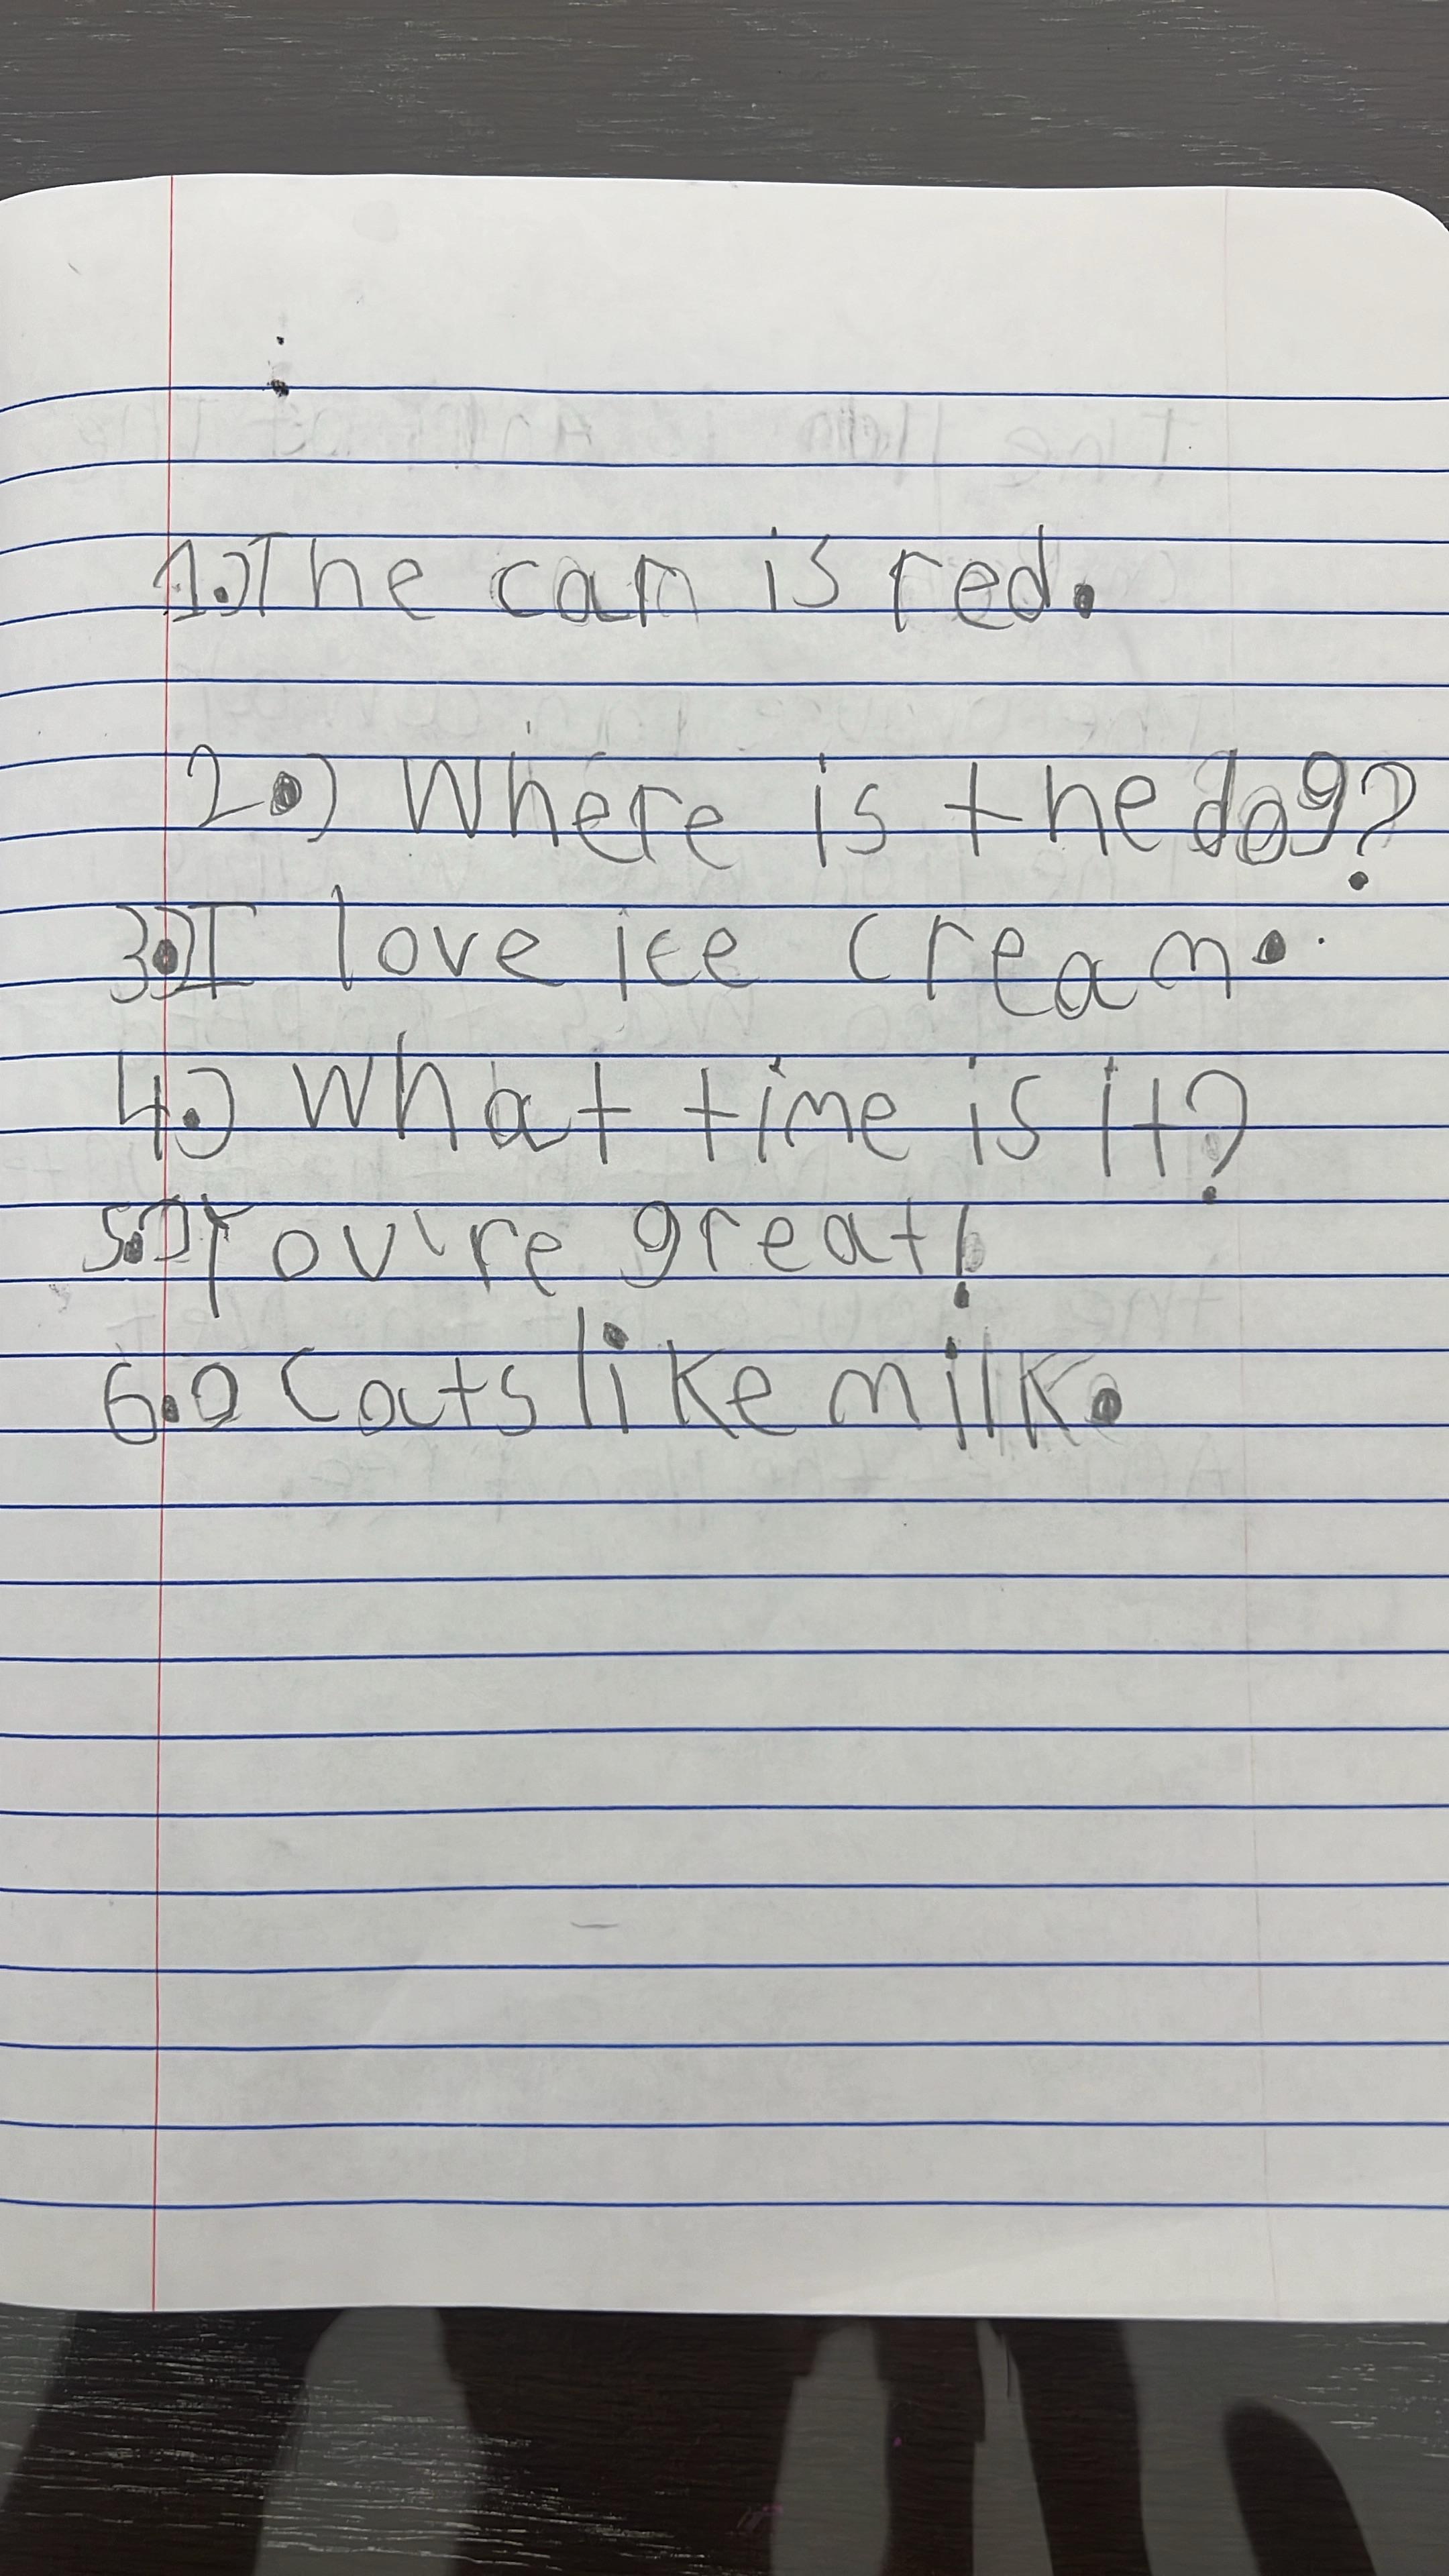 1.) The can is red.
2.) Where is the dog?
3.) I love ice cream.
4.) What time is it?
5.) You're great!
6.) Cats like milk.